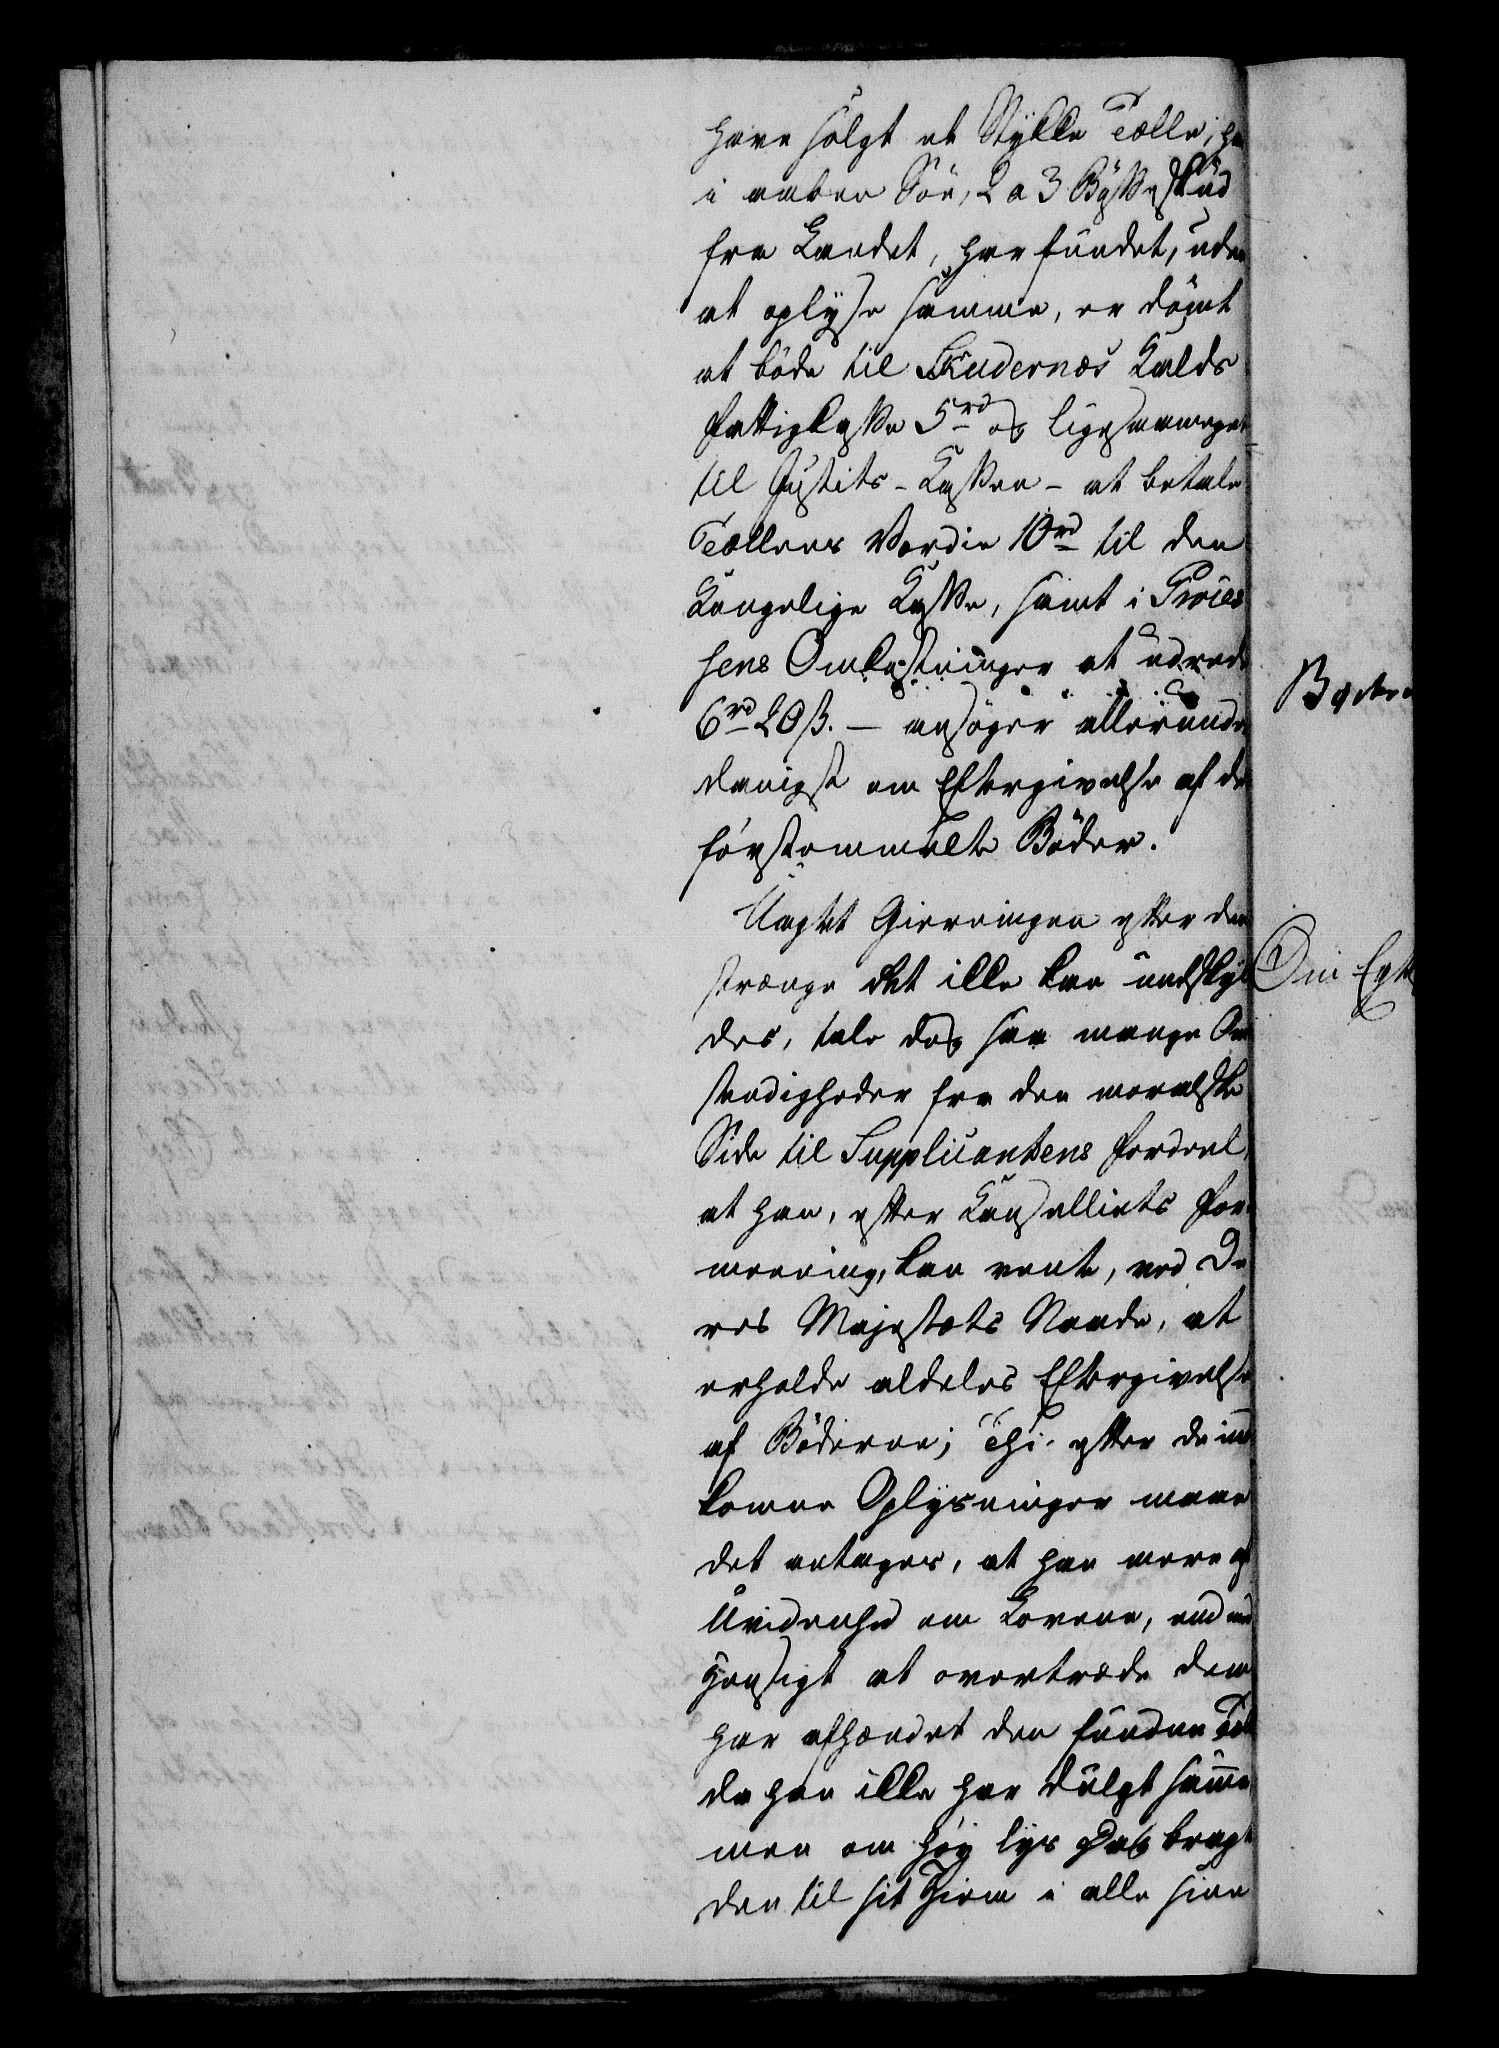 have solgt et Stykke Tælle, han
i aaben Söe, 2 a 3 Bösseskud
fra Landet, har fundet, uden
at oplyse samme, er dömt
at böde til Skudernæs Kalds
Fattigkasse 5 rd og ligesaameget
til Justits-Kassen - at betale
Tællens Værdie 10 rd til den
Kongelige Kasse, samt i Proces
sens Omkostninger at udrede
6 rd 20 ß. — ansöger allerunder
danigst om Eftergivelse af de
förstommelte Böder.
Uagtet Gierningen efter den
strænge Ret ikke kan undskyl
des, tale dog saa mange Om
stændigheder fra den moralske
Side til Supplicantens Fordeel,
at han, efter Cancelliets For
meening, kan vente, ved De
res Majestæts Naade, at
erholde aldeles Eftergivelse
af Böderne; Thi efter de ind
komne Oplysninger maae
det antages, at han mere af
Uvidenhed om Lovene, end med
Hensigt at overtræde dem
har afhændet den fundne Tælle
da han ikke har dulgt samme,
men om höy lys Dag bragt
den til sit Hiem i alle sine
Om Eft